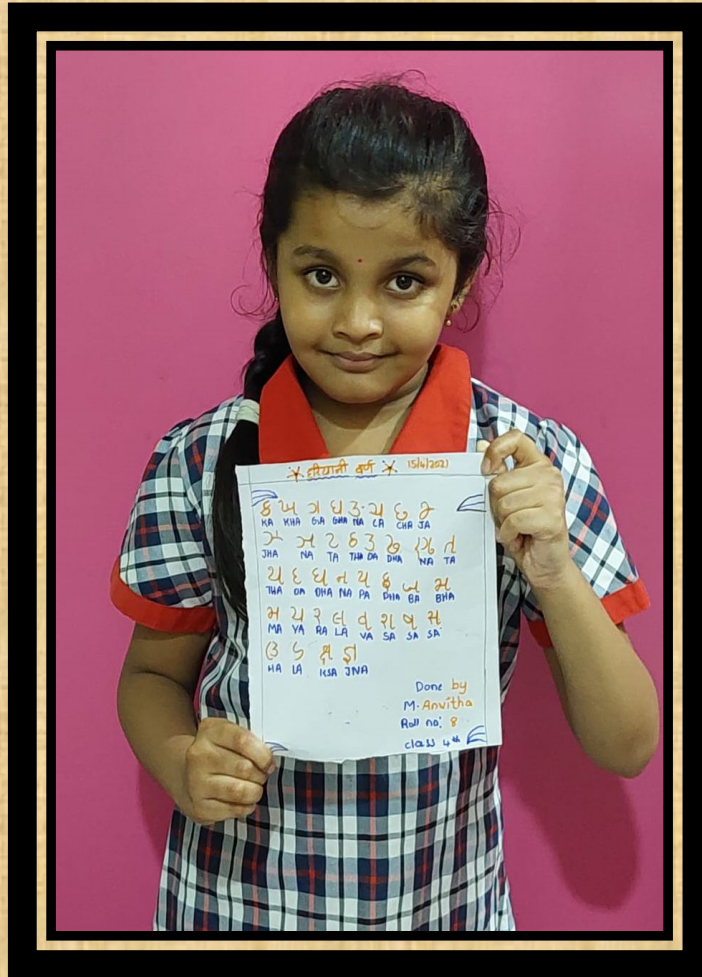 हरियानी वर्ण 15/4/2021
ક ખ ગ ઘ ઙ ચ છ જ
KA KHA GA GHA NA CA CHA JA
ઝ ઞ ટ ઠ ડ ઢ ણ ત
JHA NA TA THA DA DHA NA TA
થ દ ધ ન પ ફ બ ભ
THA DA DHA NA PA PHA BA BHA
મ ય ર લ વ શ ષ સ
MA YA RA LA VA SA SA SA
હ ળ ક્ષ જ્ઞ
HA LA KSA JNA
Done by
M. Anvitha
Roll no: 8
class 4th